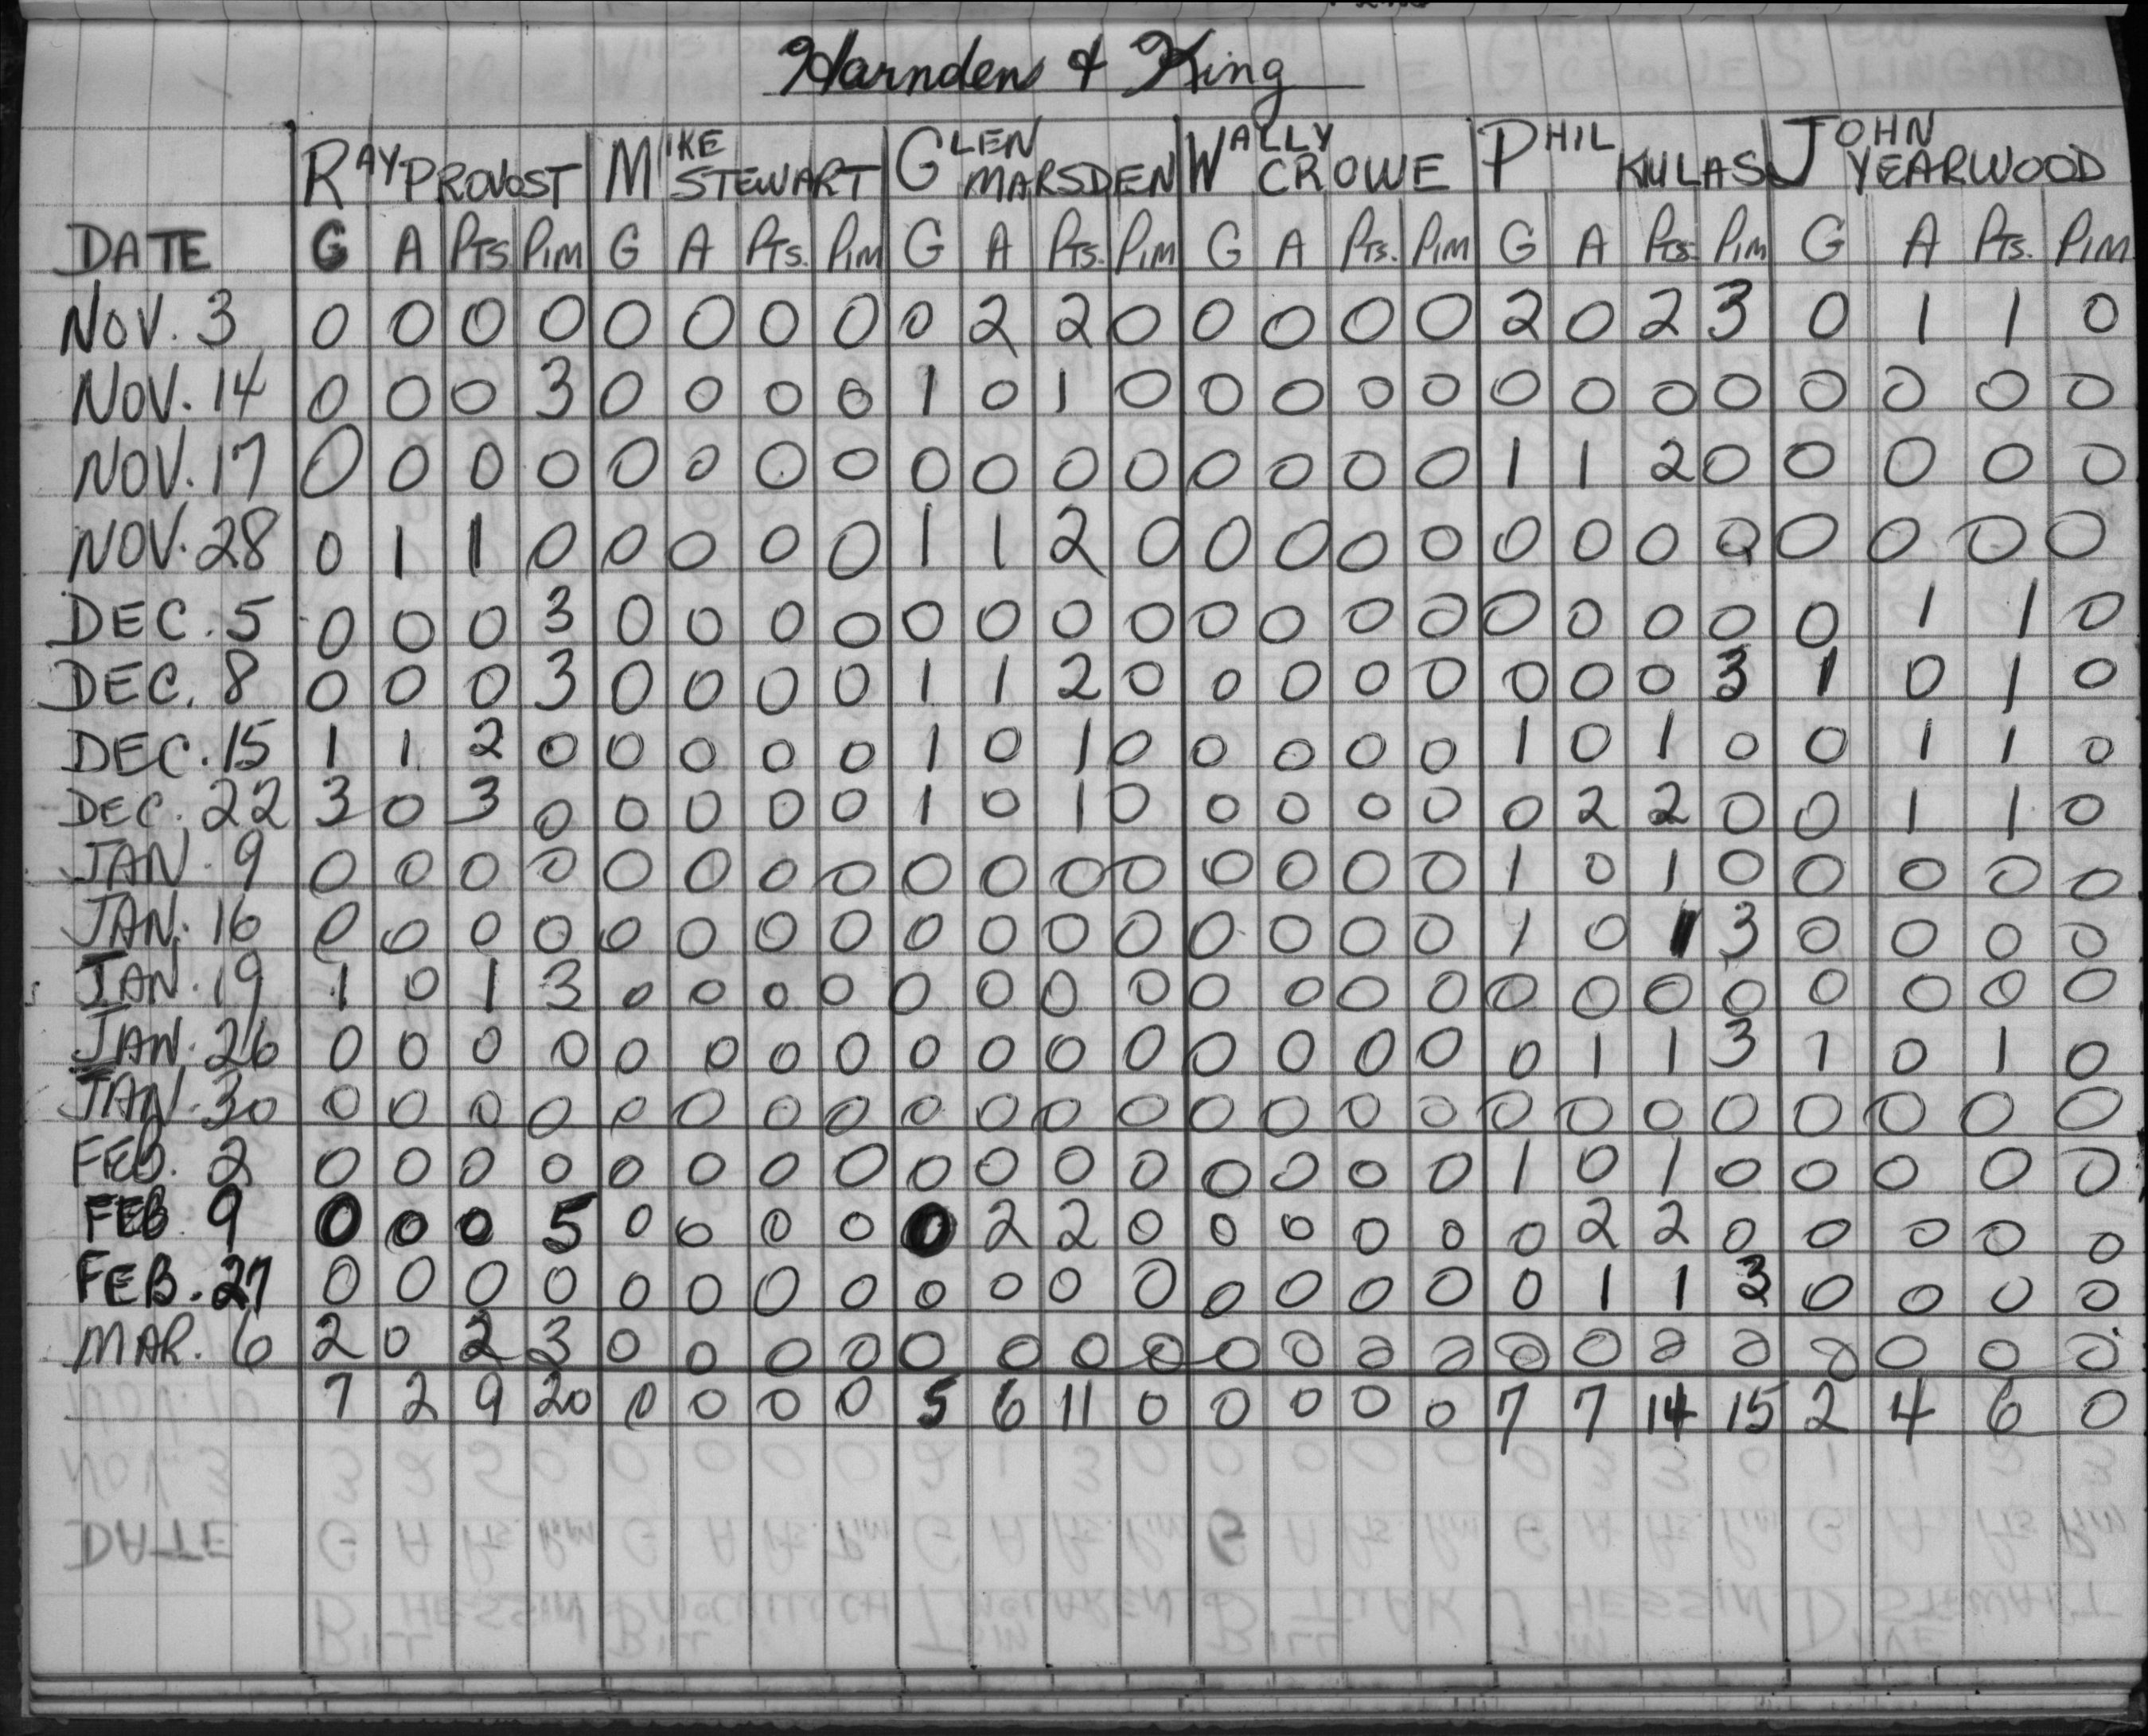 Harndens & King
RAY PROVOST MIKE STEWART GLEN MARSDEN WALLY CROWE PHIL KULAS JOHN YEARWOOD
DATE G A PTS PIM G A PTS. PIM G A PTS. PIM G A PTS. PIM G A PTS. PIM G A PTS. PIM
NOV. 3 0 0 0 0 0 0 0 0 0 2 2 0 0 0 0 0 2 0 2 3 0 1 1 0
NOV. 14 0 0 0 3 0 0 0 0 1 0 1 0 0 0 0 0 0 0 0 0 0 0 0 0
NOV. 17 0 0 0 0 0 0 0 0 0 0 0 0 0 0 0 0 1 1 2 0 0 0 0 0
NOV. 28 0 1 1 0 0 0 0 0 1 1 2 0 0 0 0 0 0 0 0 0 0 0 0 0
DEC. 5 0 0 0 3 0 0 0 0 0 0 0 0 0 0 0 0 0 0 0 0 0 1 1 0
DEC. 8 0 0 0 3 0 0 0 0 1 1 2 0 0 0 0 0 0 0 0 3 1 0 1 0
DEC. 15 1 1 2 0 0 0 0 0 1 0 1 0 0 0 0 0 1 0 1 0 0 1 1 0
DEC. 22 3 0 3 0 0 0 0 0 1 0 1 0 0 0 0 0 0 2 2 0 0 1 1 0
JAN. 9 0 0 0 0 0 0 0 0 0 0 0 0 0 0 0 0 1 0 1 0 0 0 0 0
JAN. 16 0 0 0 0 0 0 0 0 0 0 0 0 0 0 0 0 1 0 1 3 0 0 0 0
JAN. 19 1 0 1 3 0 0 0 0 0 0 0 0 0 0 0 0 0 0 0 0 0 0 0 0
JAN. 26 0 0 0 0 0 0 0 0 0 0 0 0 0 0 0 0 0 1 1 3 1 0 1 0
JAN. 30 0 0 0 0 0 0 0 0 0 0 0 0 0 0 0 0 0 0 0 0 0 0 0 0
FEB. 2 0 0 0 0 0 0 0 0 0 0 0 0 0 0 0 0 1 0 1 0 0 0 0 0
FEB. 9 0 0 0 5 0 0 0 0 0 2 2 0 0 0 0 0 0 2 2 0 0 0 0 0
FEB. 27 0 0 0 0 0 0 0 0 0 0 0 0 0 0 0 0 0 1 1 3 0 0 0 0
MAR. 6 2 0 2 3 0 0 0 0 0 0 0 0 0 0 0 0 0 0 0 0 0 0 0 0
7 2 9 20 0 0 0 0 5 6 11 0 0 0 0 0 7 7 14 15 2 4 6 0